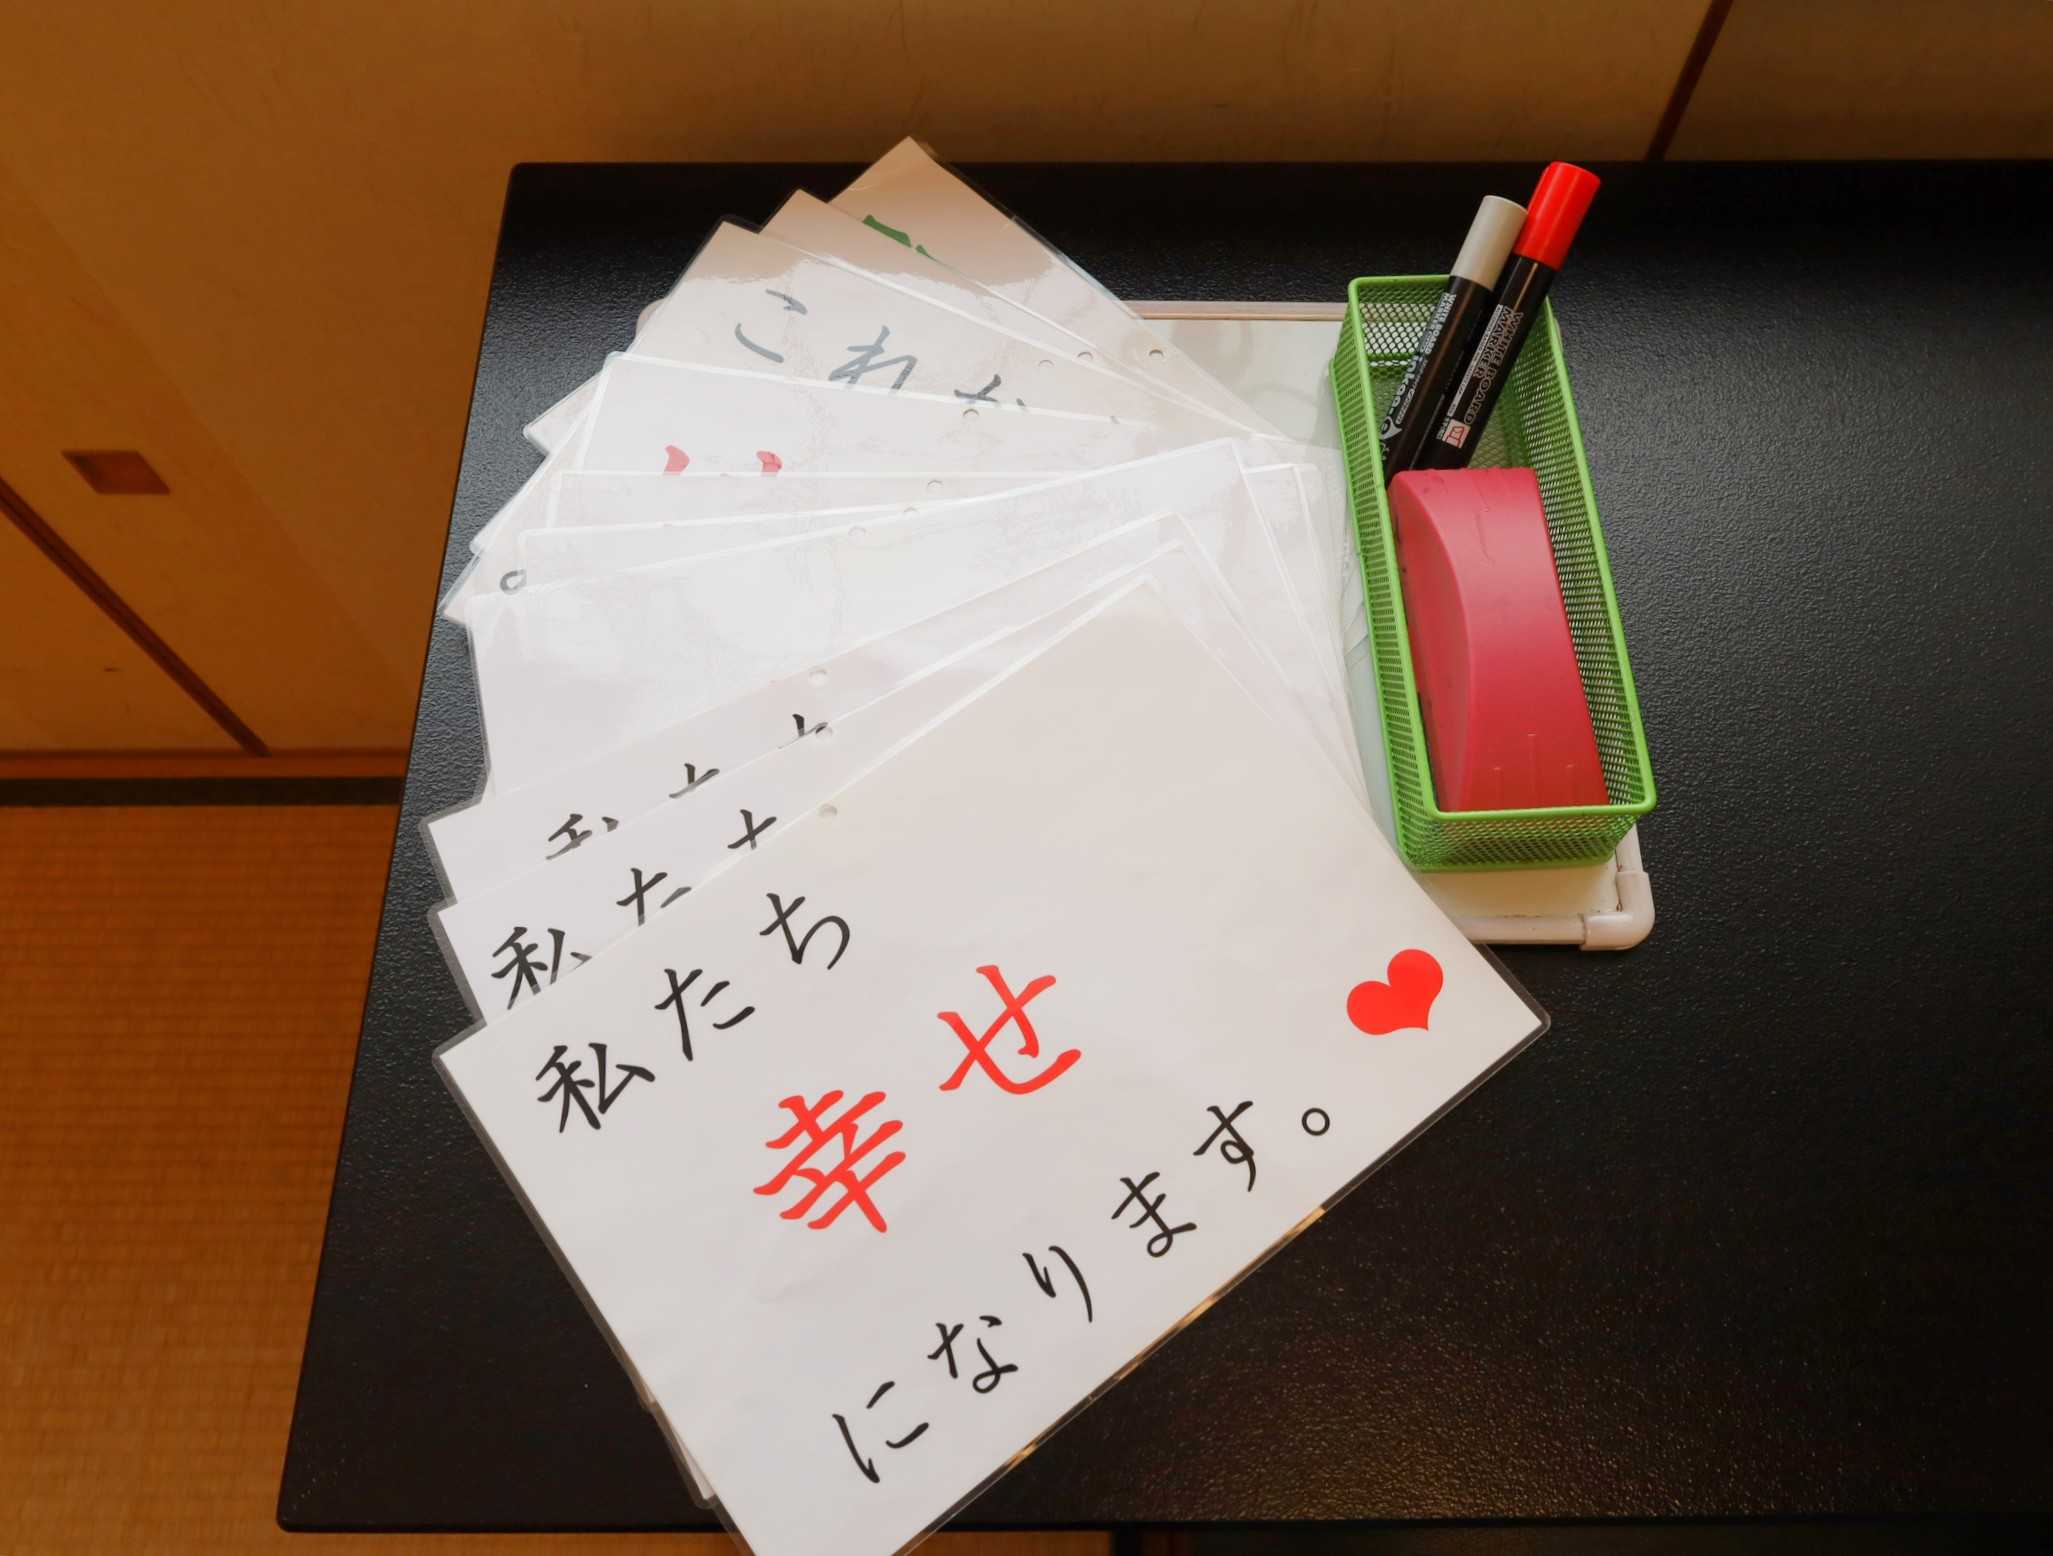 これ
私た
私たち
幸せ
になります。
WHITEBOARD
MARKER
WHITE BOARD
MARKER